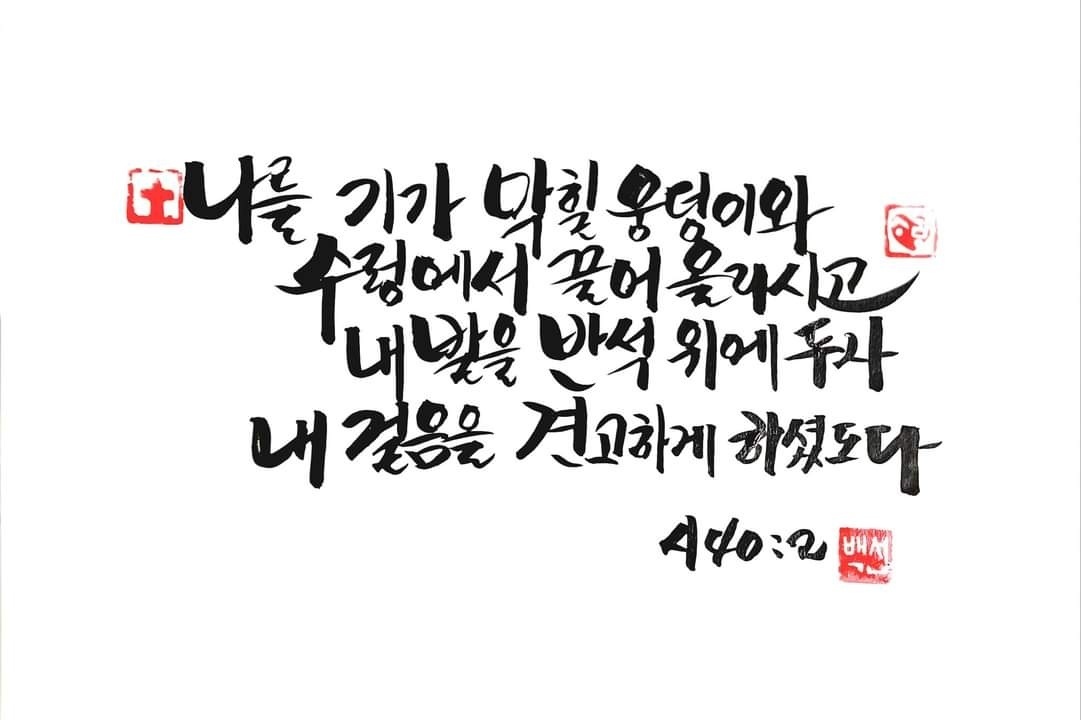 나를 기가 막힐 웅덩이와
수렁에서 끌어 올리시고
내 발을 반석 위에 두사
내 걸음을 견고하게 하셨도다
시 40:2